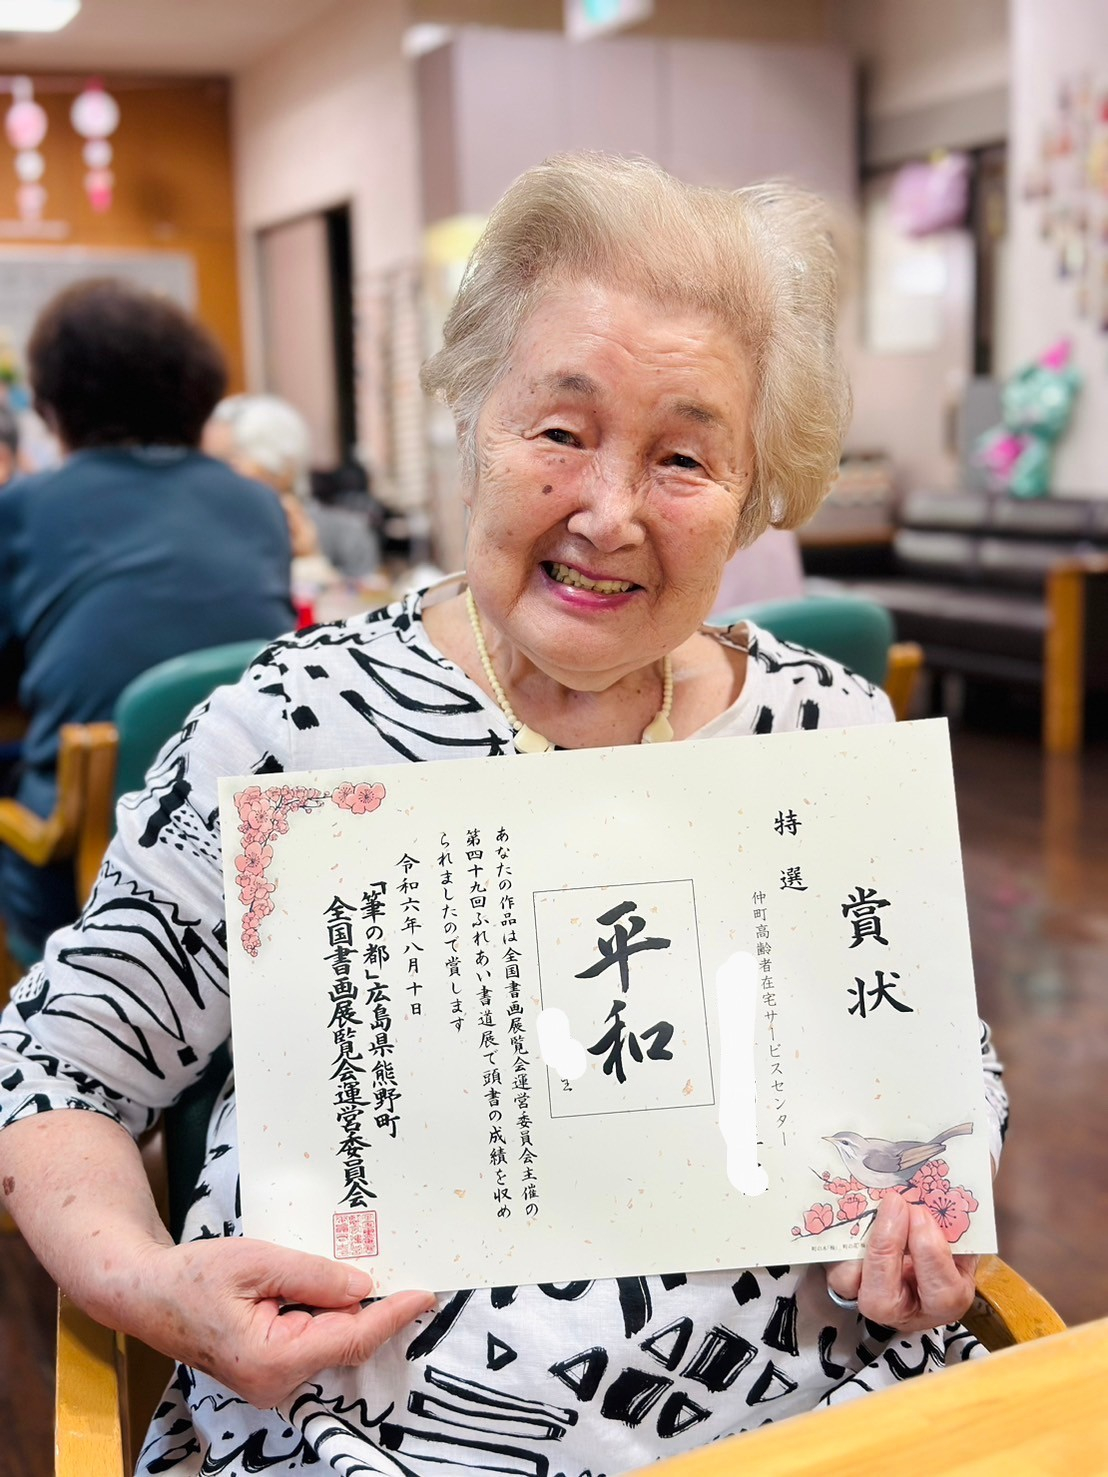 賞状
特選
仲町高齢者在宅サービスセンター
平和
あなたの作品は全国書画展覧会運営委員会主催の
第四十九回ふれあい書道展で頭書の成績を収め
られましたので賞します
令和六年八月十日
「筆の都」広島県熊野町
全国書画展覧会運営委員会